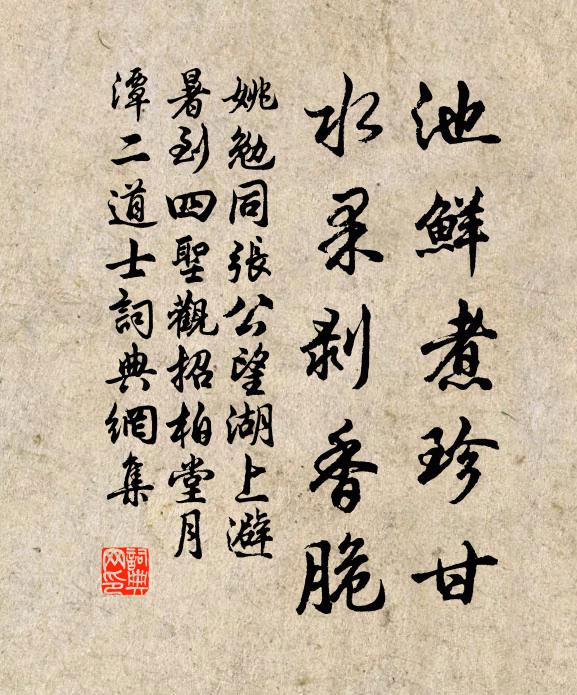 池鮮煮珍甘
水果剝香脆
姚勉同張公望湖上避
暑到四聖觀招柏堂月
潭二道士詞典網集
詞典网印